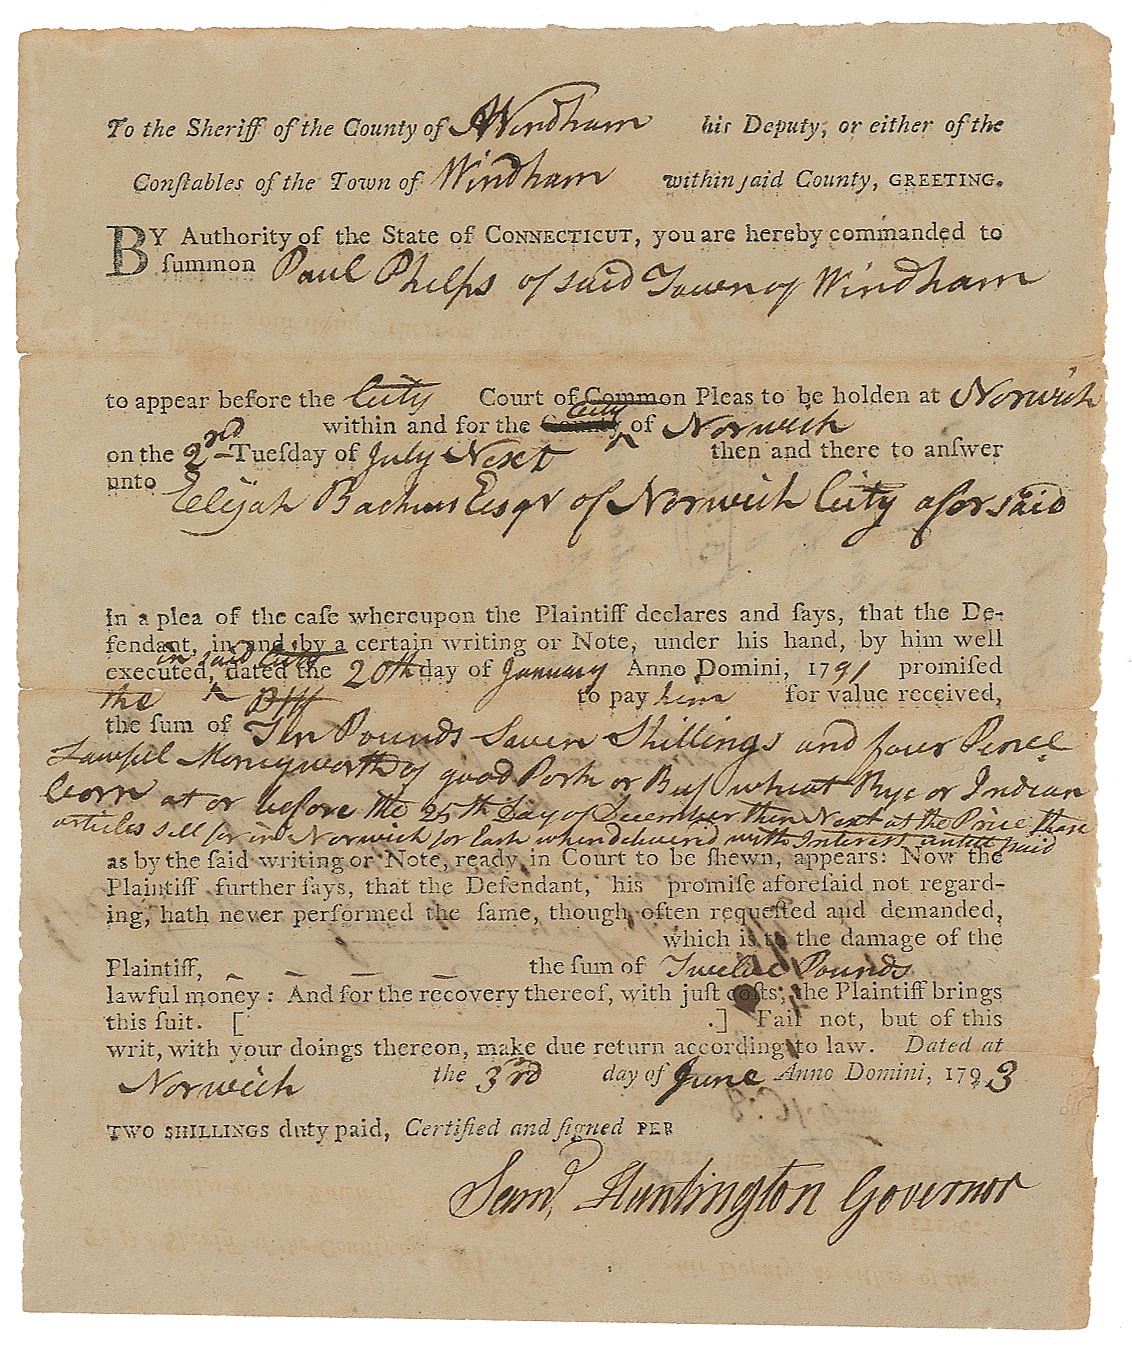 To the Sheriff of the County of Windham his Deputy, or either of the
Conſtables of the Town of Windham within ſaid County, GREETING.
BY Authority of the State of CONNECTICUT, you are hereby commanded to
ſummon Paul Phelps of said Town of Windham
to appear before the City Court of Common Pleas to be holden at Norwich
within and for the County City of Norwich
on the 2rd Tueſday of July Next then and there to anſwer
unto Elijah Backus Esqr of Norwich City afor said
In a plea of the caſe whereupon the Plaintiff declares and ſays, that the De-
fendant, in and by a certain writing or Note, under his hand, by him well
in said City
executed, dated the 20th day of January Anno Domini, 1791 promiſed
the Plff to pay him for value received,
the ſum of Ten Pounds Seven Shillings and four Pence
Lawfull Money worth of good Pork or Beef wheat Rye or Indian
Corn at or before the 25th Day of December then Next at the Price these
articles sell for in Norwich for Cash when delivered with Interest untill paid
as by the ſaid writing or Note, ready in Court to be ſhewn, appears: Now the
Plaintiff further ſays, that the Defendant, his promiſe aforeſaid not regard-
ing, hath never performed the ſame, though often requeſted and demanded,
which is to the damage of the
Plaintiff, the ſum of Twelve Pounds
lawful money: And for the recovery thereof, with juſt coſts, the Plaintiff brings
this ſuit. [ .] Fail not, but of this
writ, with your doings thereon, make due return according to law. Dated at
Norwich the 3rd day of June Anno Domini, 1793
TWO SHILLINGS duty paid, Certified and ſigned PER
Saml Huntington Governor